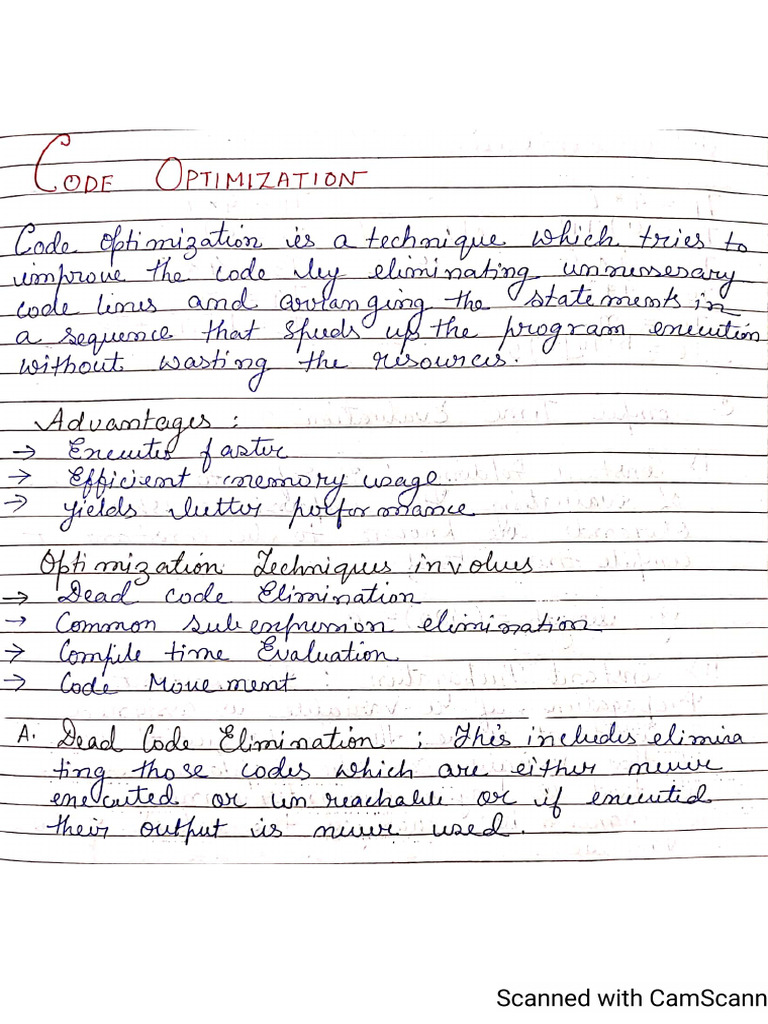 CODE OPTIMIZATION
Code Optimization is a technique which tries to
improve the code by eliminating unnussesary
code lines and arranging the statements in
a sequence that speeds up the program execution
without wasting the resources.
Advantages :
→ Executes faster
→ Efficient memory usage
→ yields better performance
Optimization Techniques involves
→ Dead code Elimination
→ Common sub expression elimination
→ Compile time Evaluation
→ Code Movement
A. Dead Code Elimination : This includes elimina
ting those codes which are either never
executed or un reachable or if executed
their output is never used.
Scanned with CamScann